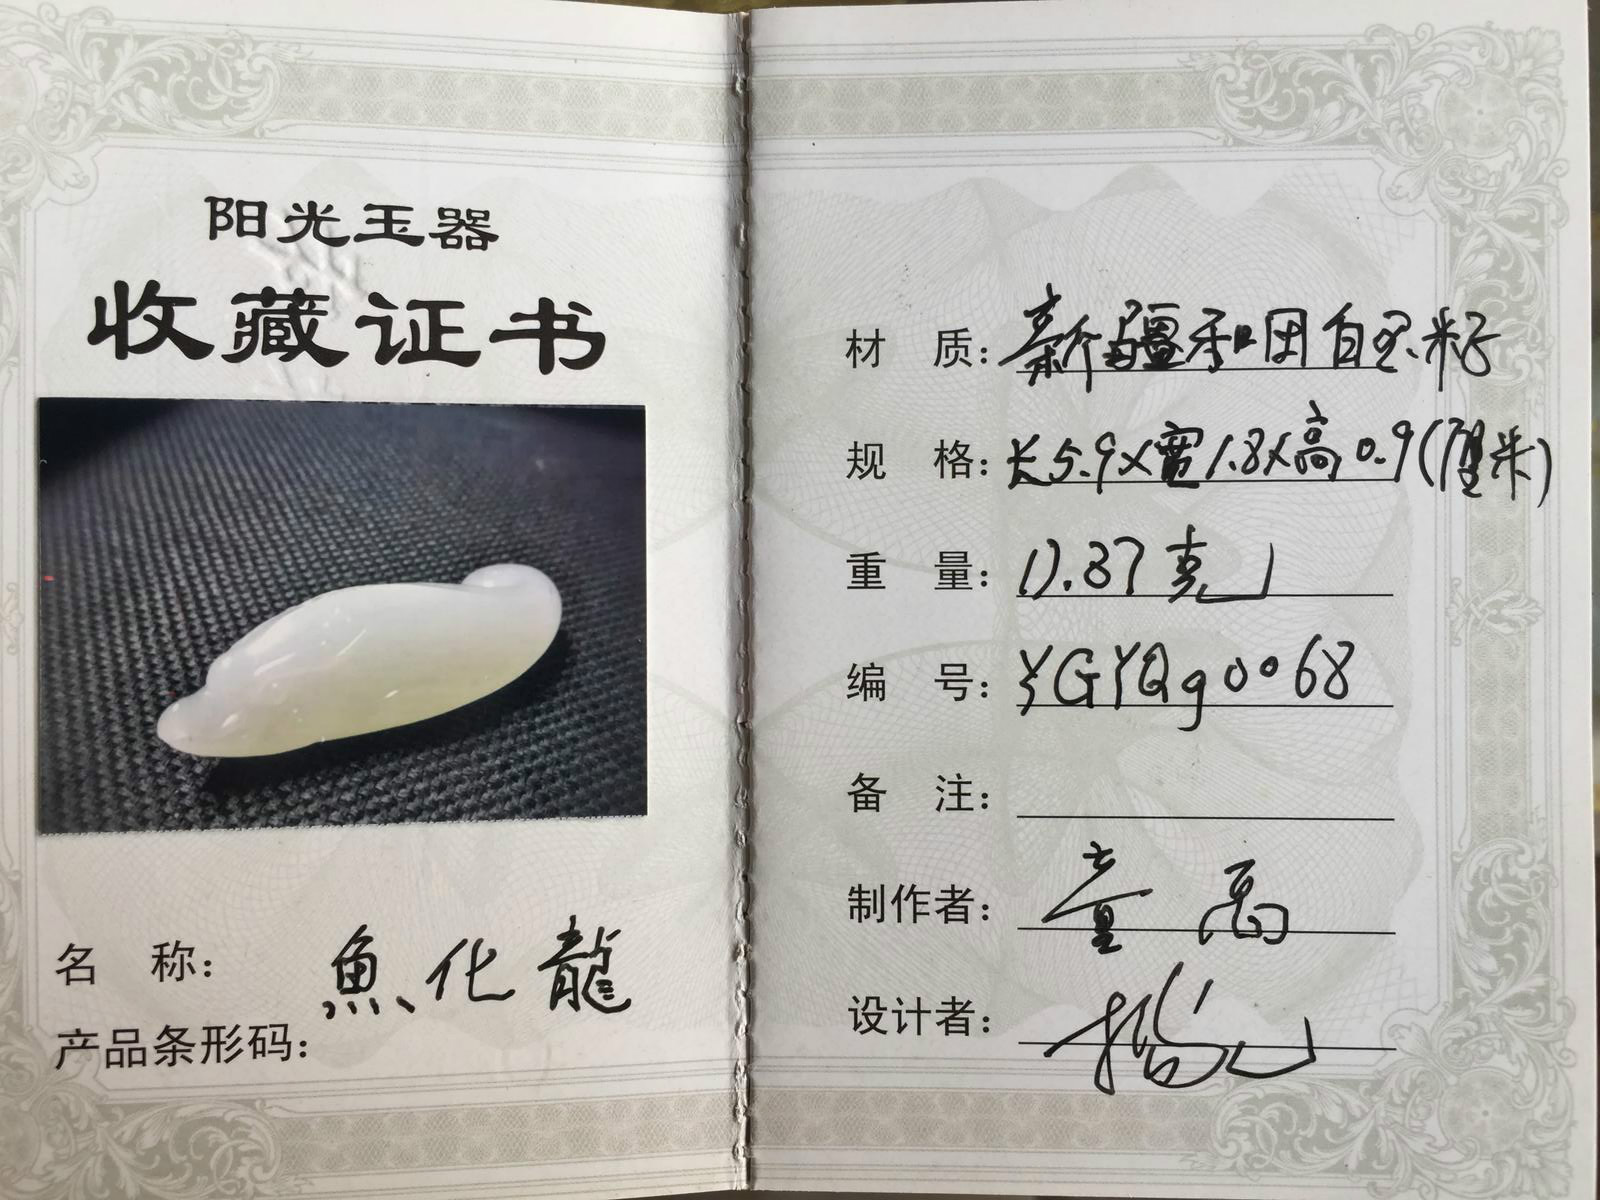 阳光玉器
收藏证书
名 称: 魚化龍
产品条形码:
材 质: 新疆和田白玉籽
规 格: 长5.9×宽1.8×高0.9(厘米)
重 量: 克
编 号: YGYQg0068
备 注:
制作者: 童
设计者: